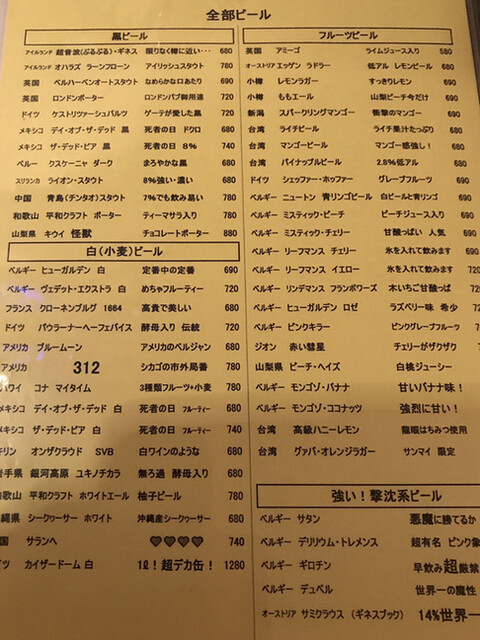 全部ビール
黒ビール
アイルランド 超音波(ぶるぶる)・ギネス 限りなく樽に近い・・・ 680
アイルランド オハラズ ラーンフローン アイリッシュスタウト 780
英国 ベルハーベンオートスタウト なめらかな口あたり 690
英国 ロンドンポーター ロンドンパブ御用達 720
ドイツ ケストリッツァーシュバルツ ゲーテが愛した黒 720
メキシコ デイ・オブ・ザ・デッド 黒 死者の日 ドクロ 680
メキシコ ザ・デッド・ピア 黒 死者の日 8% 740
ペルー クスケーニャ ダーク まろやかな黒 680
スリランカ ライオン・スタウト 8%強い・濃い 680
中国 青島(チンタオ)スタウト 7%でも飲み易い 680
和歌山 平和クラフト ポーター ティーマサラ入り 780
山梨県 キウイ 怪獣 チョコレートポーター 880
白(小麦)ビール
ベルギー ヒューガルデン 白 定番中の定番 690
ベルギー ヴェデット・エクストラ 白 めちゃフルーティー 720
フランス クローネンブルグ 1664 高貴で美しい 680
ドイツ パウラーナーヘーフェバイス 酵母入り 伝統 720
アメリカ ブルームーン アメリカのベルジャン 680
アメリカ 312 シカゴの市外局番 780
ハワイ コナ マイタイム 3種類フルーツ+小麦 780
メキシコ デイ・オブ・ザ・デッド 白 死者の日 フルーティー 680
メキシコ ザ・デッド・ピア 白 死者の日 フルーティー 740
キリン オンザクラウド SVB 白ワインのような 680
岩手県 銀河高原 ユキノチカラ 無ろ過 酵母入り 680
和歌山 平和クラフト ホワイトエール 柚子ビール 780
沖縄県 シークヮーサー ホワイト 沖縄産シークヮーサー 680
国 サランヘ ♥♥♥♥ 740
ツ カイザードーム 白 1ℓ!超デカ缶! 1280
フルーツビール
英国 アミーゴ ライムジュース入り 580
オーストリア エッゲン ラドラー 低アル レモンビール 580
小樽 レモンラガー すっきりレモン 690
小樽 ももエール 山梨ピーチ今だけ 690
新潟 スパークリングマンゴー 衝撃のマンゴー 690
台湾 ライチビール ライチ果汁たっぷり 680
台湾 マンゴービール マンゴー感強し! 680
台湾 パイナップルビール 2.8%低アル 680
ドイツ シェッファー・ホッファー グレープフルーツ 690
ベルギー ニュートン 青リンゴビール 白ビールと青リンゴ 690
ベルギー ミスティック・ピーチ ピーチジュース入り 690
ベルギー ミスティック・チェリー 甘酸っぱい 人気 690
ベルギー リーフマンス チェリー 氷を入れて飲みます 690
ベルギー リーフマンス イエロー 氷を入れて飲みます 720
ベルギー リンデマンス フランボワーズ 木いちご甘酸っぱ 720
ベルギー ヒューガルデン ロゼ ラズベリー味 希少
ベルギー ピンクキラー ピンクグレープフルーツ
ジオン 赤い彗星 チェリーがザクザク
山梨県 ピーチ・ヘイズ 白桃ジューシー
ベルギー モンゴゾ・バナナ 甘いバナナ味!
ベルギー モンゴゾ・ココナッツ 強烈に甘い!
台湾 高級ハニーレモン 龍眼はちみつ使用
台湾 グァバ・オレンジラガー サンマイ 限定
強い!撃沈系ビール
ベルギー サタン 悪魔に勝てるか
ベルギー デリリウム・トレメンス 超有名 ピンク象
ベルギー ギロチン 早飲み超厳禁
ベルギー デュベル 世界一の魔性
オーストリア サミクラウス(ギネスブック) 14%世界一